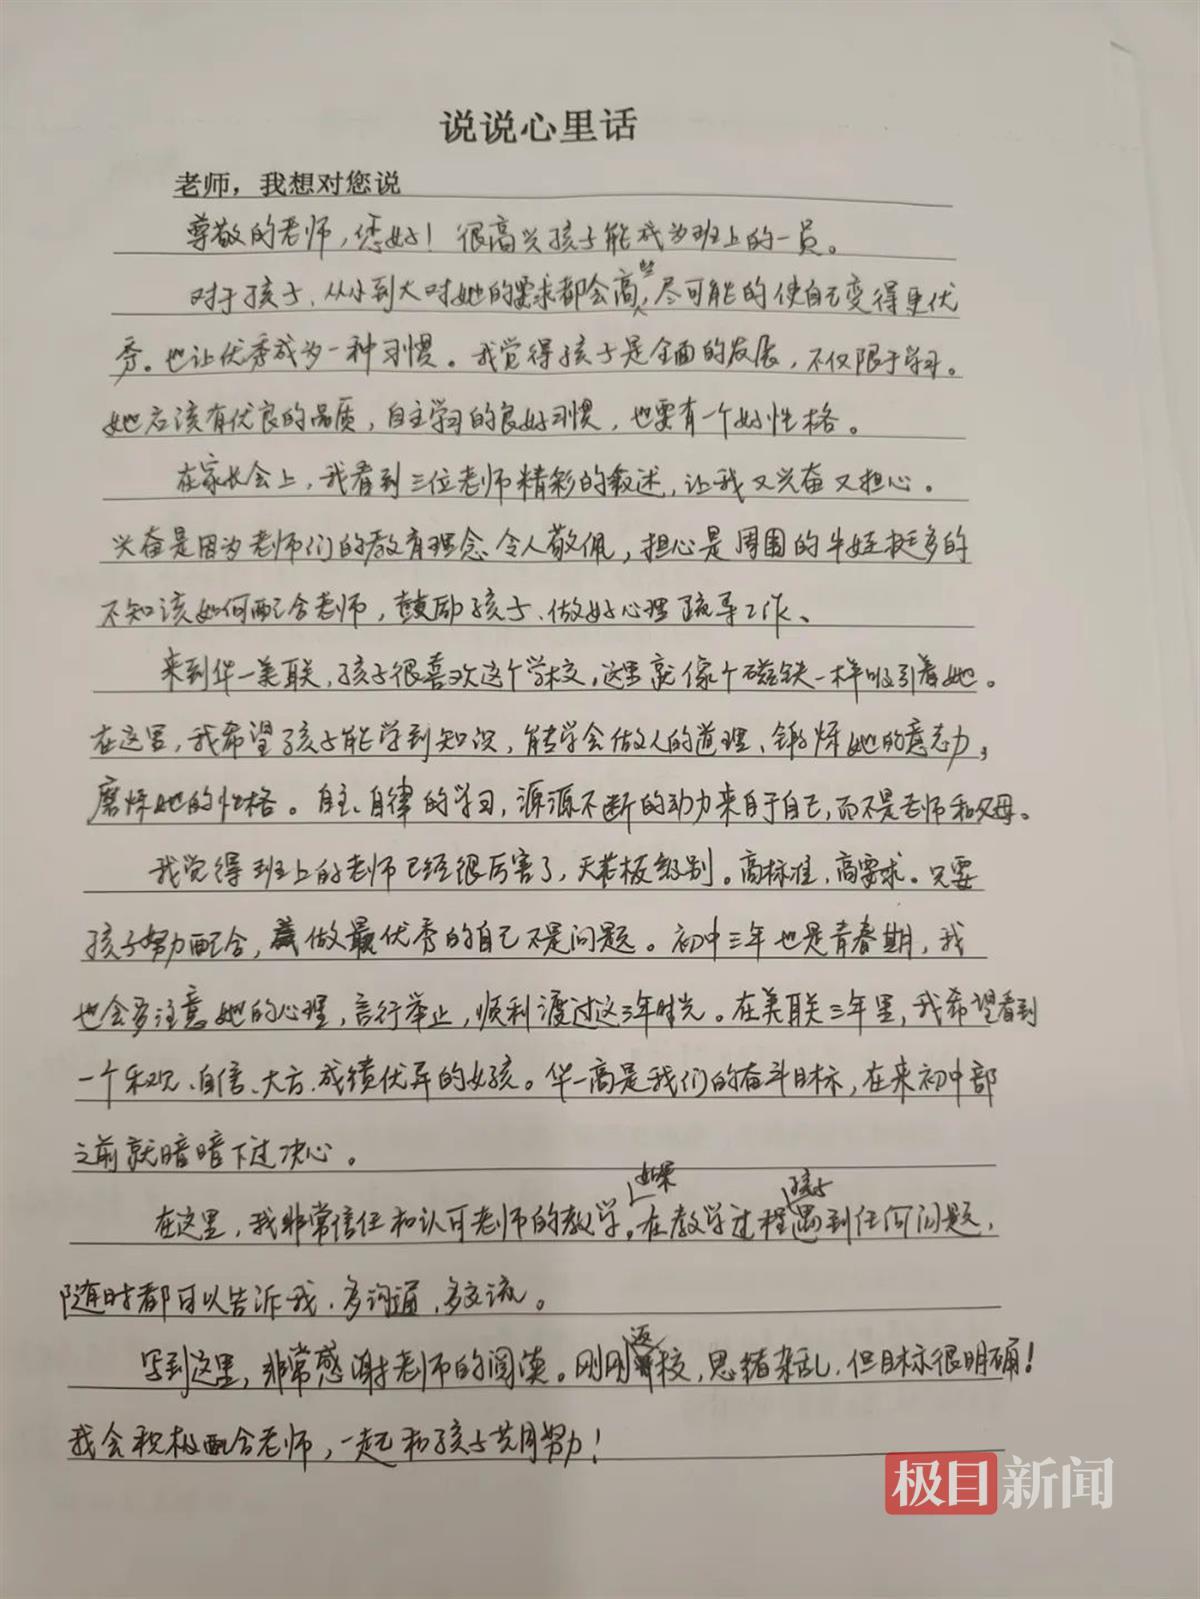 说说心里话
老师，我想对您说
尊敬的老师，您好！很高兴孩子能成为班上的一员。
对于孩子，从小到大对她的要求都会高些，尽可能的使自己变得更优
秀。也让优秀成为一种习惯。我觉得孩子是全面的发展，不仅限于学习。
她应该有优良的品质，自主学习的良好习惯，也要有一个好性格。
在家长会上，我看到三位老师精彩的叙述，让我又兴奋又担心。
兴奋是因为老师们的教育理念、令人敬佩，担心是周围的牛娃挺多的
不知该如何配合老师，鼓励孩子、做好心理疏导工作、
来到华一美联，孩子很喜欢这个学校，这里就像个磁铁一样吸引着她。
在这里，我希望孩子能学到知识，能学会做人的道理、锻炼她的意志力，
磨炼她的性格。自主、自律的学习，源源不断的动力来自于自己，而不是老师和父母。
我觉得班上的老师已经很厉害了，天花板级别。高标准，高要求。只要
孩子努力配合，做最优秀的自己不是问题。初中三年也是青春期，我
也会多注意她的心理，言行举止，顺利渡过这三年时光。在美联三年里，我希望看到
一个乐观、自信、大方、成绩优异的女孩。华一高是我们的奋斗目标，在来初中部
之前就暗暗下过决心。
在这里，我非常信任和认可老师的教学。如果在教学过程孩子遇到任何问题，
随时都可以告诉我，多沟通，多交流。
写到这里，非常感谢老师的阅读。刚刚返校，思绪杂乱，但目标很明确！
我会积极配合老师，一起和孩子共同努力！
极目新闻